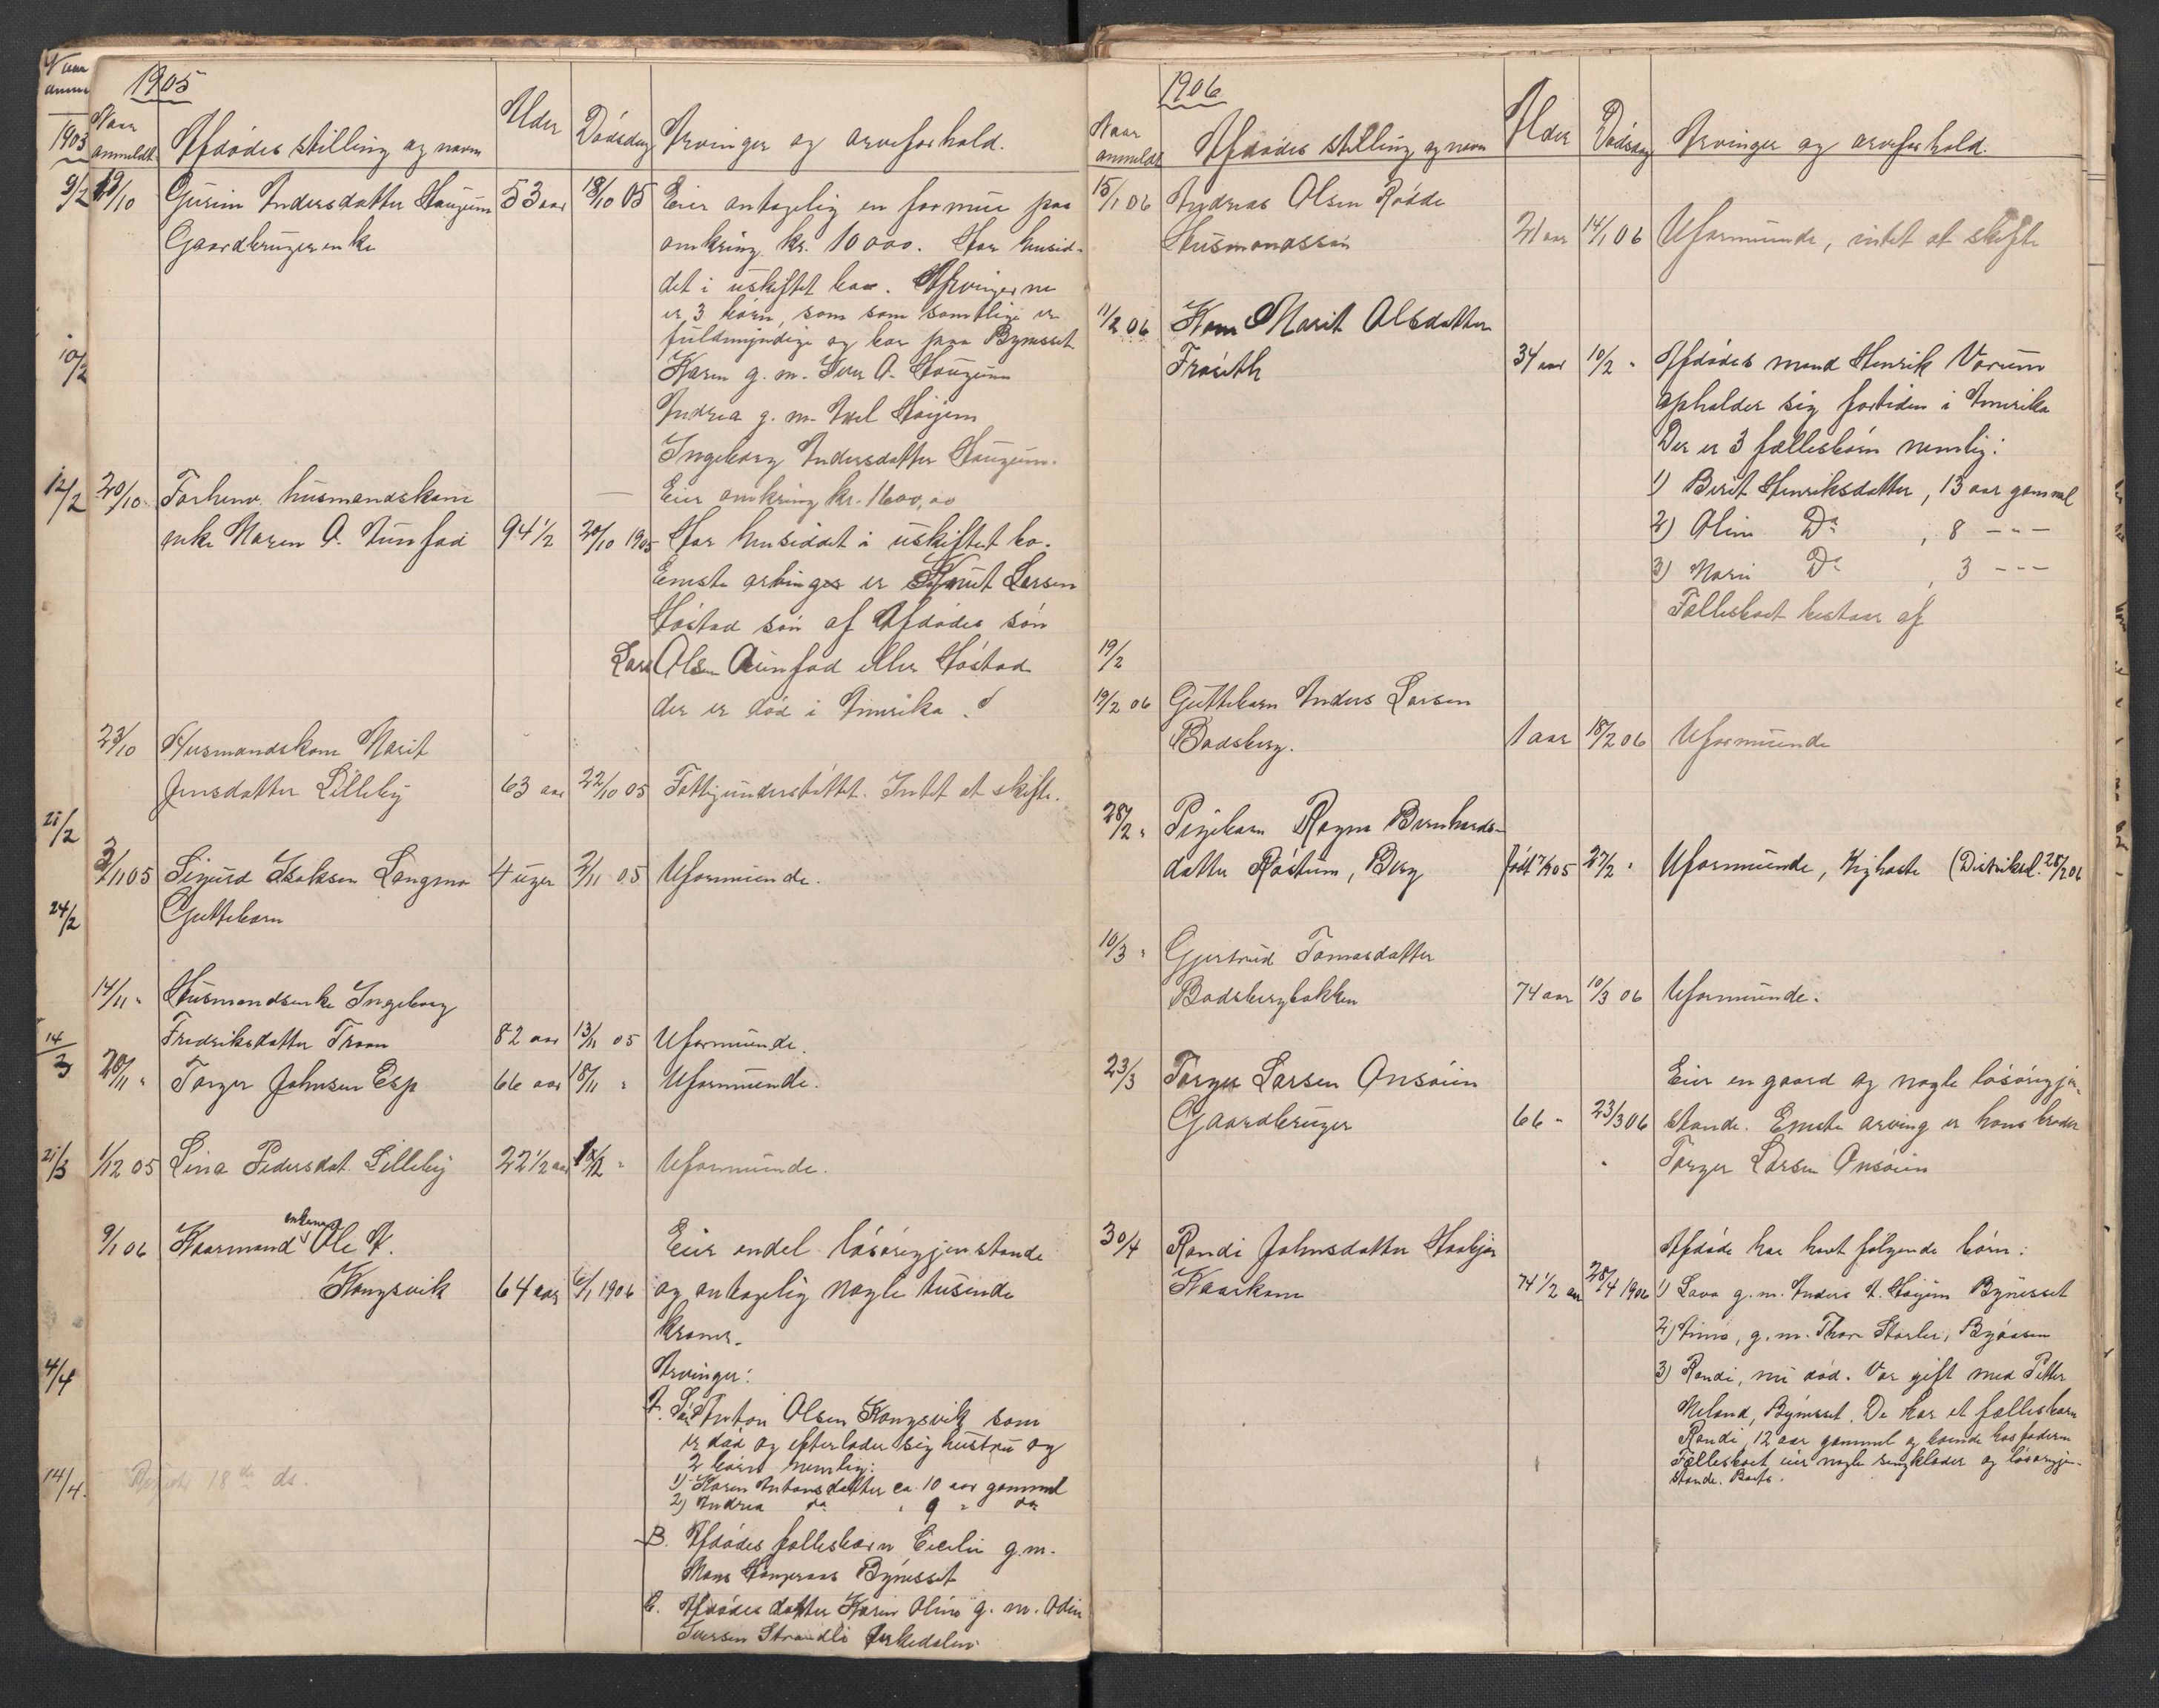 1905
Naar anmeldt. Afdødes stilling og navn Alder Dødsdag Arvinger og arveforhold.
19/10 Gurine Andersdatter Haugum 53 aar 18/10 05 Eier antagelig en formue paa
Gaardbrugerenke omkring kr. 10 000. Har hensid-
det i uskiftet bo. Arvingerne
er 3 børn, som som samtlige er
fuldmyndige og bor paa Bynesset
Karen g. m. Iver O. Haugum
Andrea g. m. Axel Høijem
Ingeborg Andersdatter Haugum.
20/10 Forhenv. husmandskone Eier omkring kr. 1600,00
enke Maren O. Aunfad 94 1/2 20/10 1905 Har hensiddet i uskiftet bo.
Eneste arvinger er Knut Larsen
Høstad søn af Afdødes søn
Lars Olsen Aunfad eller Høstad
der er død i Amerika.
23/10 Husmandskone Marit
Jensdatter Lilleby 63 aar 22/10 05 Fattigunderstøttet. Intet at skifte.
3/11 05 Sigurd Isaksen Langmo 4 uger 2/11 05 Uformuende.
Guttebarn
14/11 " Husmandsenke Ingeborg
Fredriksdatter Troan 82 aar 13/11 05 Uformuende.
20/11 " Torger Johnsen Esp 66 aar 18/11 " Uformuende.
1/12 05 Lina Pedersdat. Lilleby 22 1/2 aar /12 " Uformuende.
9/1 06 Kaarmand enkemand Ole A. Eier endel løsøregjenstande
Kongsvik 64 aar 6/1 1906 og antagelig nogle tusinde
kroner.
Arvinger:
A. Søn Anton Olsen Kongsvik som
er død og efterlader sig hustru og
2 børn nemlig:
1) Karen Antonsdatter ca. 10 aar gammel
2) Andrea do. " 9 " do.
B. Afdødes fællesbarn Cecilie g.m.
Hans Haugeraas Bynesset
C. Afdødes datter Karen Oline g. m. Odin
Iversen Strandli Ørkedalen
18de ds.
1903
9/2
10/2
12/2
21/2
24/2
14/3
21/3
4/4
14/4.
1906
Naar anmeldt Afdødes stilling og navn Alder Dødsdag Arvinger og arveforhold.
15/1 06 Andreas Olsen Rødde
Husmandssøn 21 aar 14/1 06 Uformuende, intet at skifte
11/2 06 Kone Marit Olsdatter
Frøseth 34 aar 10/2 " Afdødes mand Henrik Vorum
opholder sig fortiden i Amerika
Der er 3 fællesbørn nemlig:
1) Berit Henriksdatter, 13 aar gammel
2) Oline Do , 8 - - -
3) Marie Do , 3 - - -
Fælleboet bestaar af
19/2
19/2 06 Guttebarn Anders Larsen
Bodsberg. 1 aar 18/2 06 Uformuende
28/2 " Pigebarn Ragna Bernhards-
datter Røstum, Berg født 05 27/2 " Uformuende, Kighoste (Distriktsl. 28/2 06
10/3 " Gjertrud Tomasdatter
Bodsbergbakken 74 aar 10/3 06 Uformuende.
23/3 Torger Larsen Onsøien Eier en gaard og nogle løsøregjen-
Gaardbruger 66 " 23/3 06 stande. Eneste arving er hans broder
Torger Larsen Onsøien
30/4 Randi Johnsdatter Haabjør Afdøde har havt følgende børn:
Kaarkone 74 1/2 aar 28/4 1906 1) Sara g. m. Anders A. Høijem Bynesset
2) Anna, g. m. Thore Storler, Byaasen
3) Randi, nu død. Var gift med Petter
Meland, Bynesset. De har et fællesbarn
Randi, 12 aar gammel og boende hos faderen
Fællesboet eier nogle sengklæder og løsøregjen-
stande.